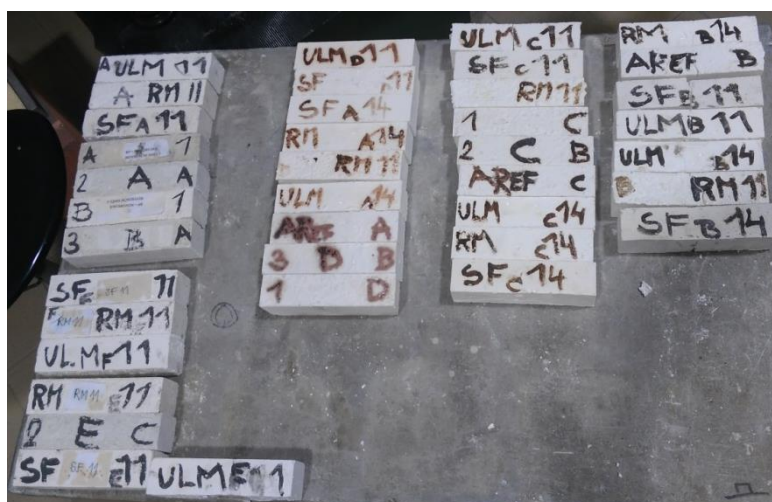 A ULM 11
A RM 11
SF A 11
A 1
2 A A
B 1
3 B A
SF E 11
F RM 11 RM 11
ULM F 11
RM RM 11 E 11
E C
SF E 11
ULM E 11
ULM D 11
SF 11
SF A 14
RM A 14
RM 11
ULM A 14
AREF A
3 B B
1 D
ULM C 11
SF C 11
RM 11
1 C
2 C B
AREF C
ULM C 14
RM C 14
SF C 14
RM B 14
AREF B
SF B 11
ULM B 11
ULM B 14
B RM 11
SF B 14